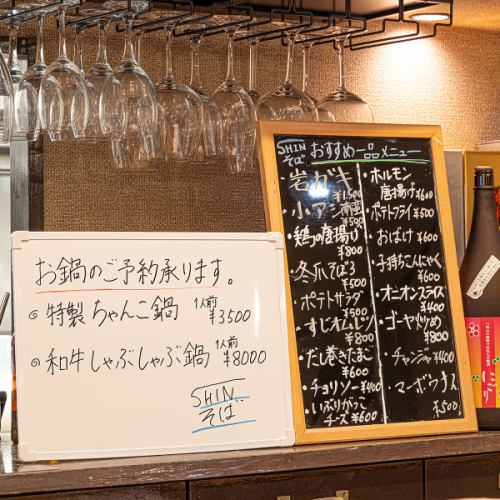 お鍋のご予約承ります。
◎ 特製ちゃんこ鍋 1人前 ¥3500
◎ 和牛しゃぶしゃぶ鍋 1人前 ¥8000
SHIN
そば
SHIN
そば
おすすめ一品メニュー
・岩ガキ ¥1,500
・小アジ南蛮 ¥500
・鶏の唐揚げ ¥800
・ポテトサラダ ¥500
・すじオムレツ ¥800
・だし巻きたまご ¥600
・チョリソー ¥400
・いぶりがっこ
チーズ ¥600
・ホルモン
唐揚げ ¥600
・ポテトフライ ¥500
・おばけ ¥600
・子持ちこんにゃく ¥600
・オニオンスライス ¥400
・ゴーヤ炒め ¥800
・チャンジャ ¥400
・マーボウナス ¥500